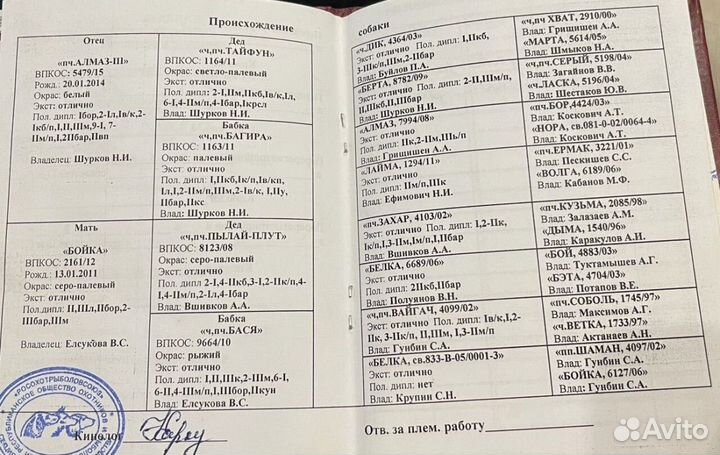 Происхождение
Отец
«пч.АЛМАЗ-III»
ВПКОС: 5479/15
Рожд.: 20.01.2014
Окрас: белый
Экст: отлично
Пол. дипл: Iбор,2-Iл,Iв/к,2-
Iкб/п,I,II,IIIм,9-I, 7-
IIм/п,I,2IIбар,IIвп
Владелец: Шурков Н.И.
Мать
«БОЙКА»
ВПКОС: 2161/12
Рожд.: 13.01.2011
Окрас: серо-палевый
Экст: отлично
Пол. дипл: II,IIIл,IIбор,2-
IIIбар,IIм
Владелец: Елсукова В.С.
Дед
«ч,пч.ТАЙФУН»
ВПКОС: 1164/11
Окрас: светло-палевый
Экст: отлично
Пол. дипл: 2-I,IIм,IIкб,Iв/к,Iл,
6-I,4-IIм/п,4-Iбар,Iкрсл
Влад: Шурков Н.И.
Бабка
«ч,пч.БАГИРА»
ВПКОС: 1163/11
Окрас: палевый
Экст: отлично
Пол. дипл: I,IIкб,Iк/п,Iв/кп,
Iл,I,2-IIм/п,IIIм,2-Iв/к, I,IIу,
IIбар,IIкс
Влад: Шурков Н.И.
Дед
«ч,пч.ПЫЛАЙ-ПЛУТ»
ВПКОС: 8123/08
Окрас: серо-палевый
Экст: отлично
Пол. дипл 2-I,4-IIкб,3-I,2-IIк/п,4-
I,4-IIм/п,2-Iл,4-Iбар
Влад: Вшивков А.А.
Бабка
«ч,пч.БАСЯ»
ВПКОС: 9664/10
Окрас: рыжий
Экст: отлично
Пол. дипл: I,II,IIIк,2-IIIм,6-I,
6-II,4-IIIм/п,IIIбор,IIкун
Влад: Елсукова В.С.
Кинолог
собаки
«ч.ДИК, 4364/03»
Экст: отлично Пол. дипл: I,IIкб,
3-IIIк/п,IIIм,2-IIбар
Влад: Буйлов П.А.
«БЕРТА, 8782/09»
Экст: отлично Пол. дипл: 2-II,IIIм/п,
II,IIIкб,II,IIIбар
Влад: Шурков Н.И.
«АЛМАЗ, 7994/08»
Экст: отлично
Пол. дипл: IIк,2-IIм,IIIь/п
Влад: Грищишен А.А.
«ЛАЙМА, 1294/11»
Экст: отлично
Пол. дипл: IIм/п,IIIк
Влад: Ефимович Н.И.
«пч.ЗАХАР, 4103/02»
Экст: отлично Пол. дипл: I,2-IIк,
Iк/п,I,3-IIм,Iм/п,I,IIбар
Влад: Вшивков А.А.
«БЕЛКА, 6689/06»
Экст: отлично
Пол. дипл: 2IIкб,IIбар
Влад: Полуянов В.Н.
«ч,пч.ВАЙГАЧ, 4099/02»
Экст: отлично Пол. дипл: Iв/к,I,2-
IIк, 3-IIк/п, II,IIIм, I,3-IIм/п
Влад: Гунбин С.А.
«БЕЛКА, св.833-В-05/0001-3»
Экст: отлично
Пол. дипл: нет
Влад: Крупин С.Н.
«ч,пч ХВАТ, 2910/00»
Влад: Грищишен А.А.
«МАРТА, 5614/05»
Влад: Шмыков Н.А.
«ч,пч.СЕРЫЙ, 5198/04»
Влад: Загайнов В.В.
«ч.ЛАСКА, 5196/04»
Влад: Шестаков Ю.В.
«пч.БОР,4424/03»
Влад: Коскович А.Т.
«НОРА, св.081-0-02/0064-4»
Влад: Коскович А.Т.
«пч.ЕРМАК, 3221/01»
Влад: Пескишев С.С.
«ВОЛГА, 6189/06»
Влад: Кабанов М.Ф.
«пч.КУЗЬМА, 2085/98»
Влад: Залазаев А.М.
«ДЫМА, 1540/96»
Влад: Каракулов А.И.
«БОЙ, 4883/03»
Влад: Туктамышев А.Г.
«БЭТА, 4704/03»
Влад: Потапов В.Е.
«пч.СОБОЛЬ, 1745/97»
Влад: Максимов А.Г.
«ч.ВЕТКА, 1733/97»
Влад: Актанаев А.Н.
«пп.ШАМАН, 4097/02»
Влад: Гунбин С.А.
«БОЙКА, 6127/06»
Влад: Гунбин С.А.
Отв. за плем. работу
«РОСОХОТРЫБОЛОВСОЮЗ»
Avito